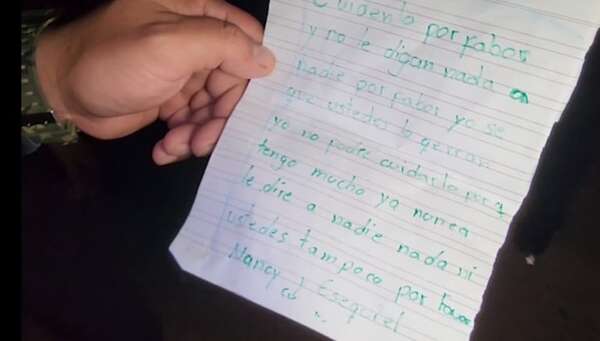 Cuidenlo por fabor
y no le digan nada a
nadie por fabor yo se
que ustedes lo qerran
yo no podre cuidarlo porq
tengo mucho ya nunca
le dire a nadie nada ni
ustedes tampoco por favor
Nancy y Esequiel